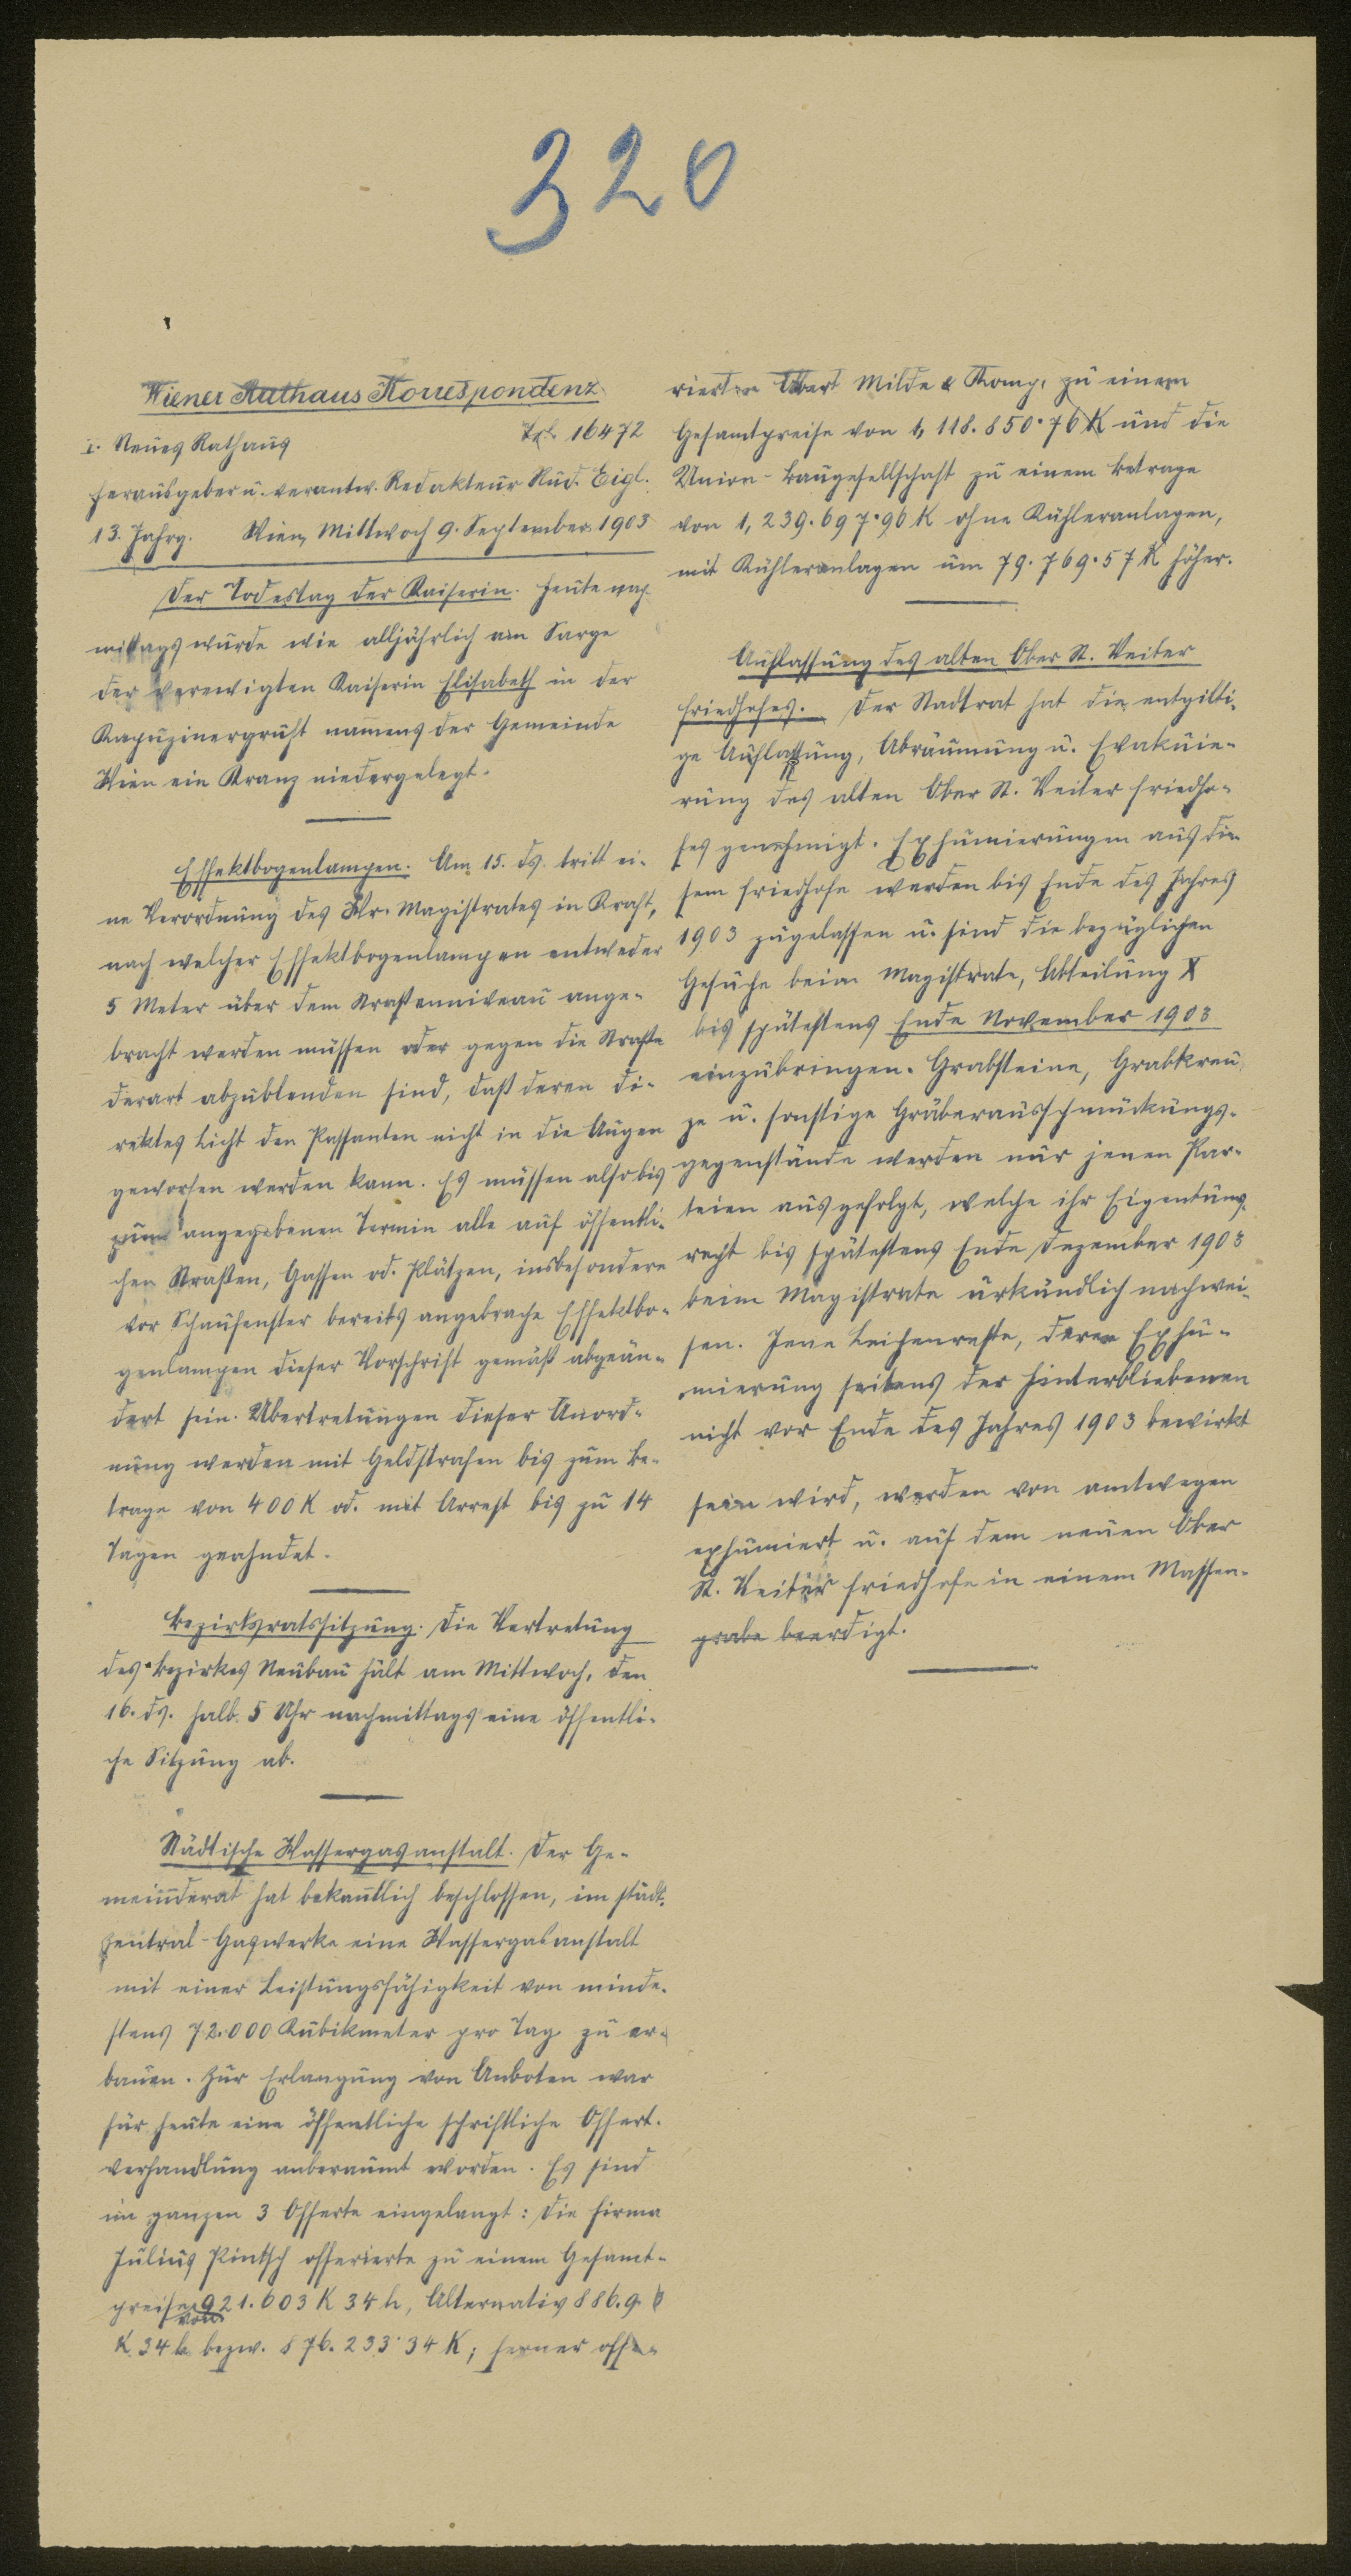 320
Wiener Rathaus Korrespondenz
I. Neues Rathaus Tel. 16472
Herausgeber u. verantw. Redakteur Rud. Eigl.
13. Jahrg. Wien, Mittwoch 9. September 1903
Der Todestag der Kaiserin. Heute nach-
mittags wurde wie alljährlich am Sarge
der verewigten Kaiserin Elisabeth in der
Kapuzinergruft namens der Gemeinde
Wien ein Kranz niedergelegt.
Effektbogenlampen. Am 15. ds. tritt ei-
ne Verordnung des Wr. Magistrates in Kraft,
nach welcher Effektbogenlampen entweder
5 Meter über dem Straßenniveau ange-
bracht werden müssen oder gegen die Straße
derart abzublenden sind, daß deren di-
rektes Licht den Passanten nicht in die Augen
geworfen werden kann. Es müssen also bis
zum angegebenen Termin alle auf öffentli-
chen Straßen, Gassen od. Plätzen, insbesondere
vor Schaufenster bereits angebrache Effektbo-
genlampen dieser Vorschrift gemäß abgeän-
dert sein. Übertretungen dieser Anord-
nung werden mit Geldstrafen bis zum Be-
trage von 400 K od. mit Arrest bis zu 14
Tagen geahndet.
Bezirksratssitzung. Die Vertretung
des Bezirkes Neubau hält am Mittwoch, den
16. ds. halb 5 Uhr nachmittags eine öffentli-
che Sitzung ab.
Städtische Wassergasanstalt. Der Ge-
meinderat hat bekanntlich beschlossen, im städt.
Zentral-Gaswerke eine Wassergasanstalt
mit einer Leistungsfähigkeit von minde-
stens 72.000 Kubikmeter pro Tag zu er-
bauen. Zur Erlangung von Anboten war
für heute eine öffentliche schriftliche Offert-
verhandlung anberaumt worden. Es sind
im ganzen 3 Offerte eingelangt: Die Firma
Julius Pintsch offerierte zu einem Gesamt-
preise von 921.603 K 34 h, Alternativ 886.9
K 34 h bezw. 876.233·34 K; ferner offe-
rierten Albert Milde & Komp. zu einem
Gesamtpreise von 1,118.850·76 K und die
Union-Baugesellschaft zu einem Betrage
von 1,239.697·96 K ohne Kühleranlagen,
mit Kühleranlagen um 79.769·57 K höher.
Auflassung des alten Ober St. Veiter
Friedhofes. Der Stadtrat hat die entgilti-
ge Auflassung, Abräumung u. Evakuie-
rung des alten Ober St. Veiter Friedho-
fes genehmigt. Exhumierungen aus die
sem Friedhofe werden bis Ende des Jahres
1903 zugelassen u. sind die bezüglichen
Gesuche beim Magistrate, Abteilung X
bis spätestens Ende November 1903
einzubringen. Grabsteine, Grabkreu-
ze u. sonstige Gräberausschmückungs-
gegenstände werden nur jenen Par-
teien ausgefolgt, welche ihr Eigentums-
recht bis spätestens Ende Dezember 1903
beim Magistrate urkundlich nachwei-
sen. Jene Leichenreste, deren Exhu-
mierung seitens der Hinterbliebenen
nicht vor Ende des Jahres 1903 bewirkt
sein wird, werden von amtwegen
exhumiert u. auf dem neuen Ober
St. Veiter Friedhofe in einem Massen-
grabe beerdigt.